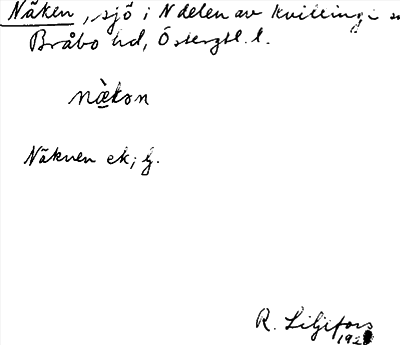 Näken, sjö i N delen av Kvillinge
Bråbo hd, Östergtl. l.
nä̀kən
Näknen ek;
R. Liljefors